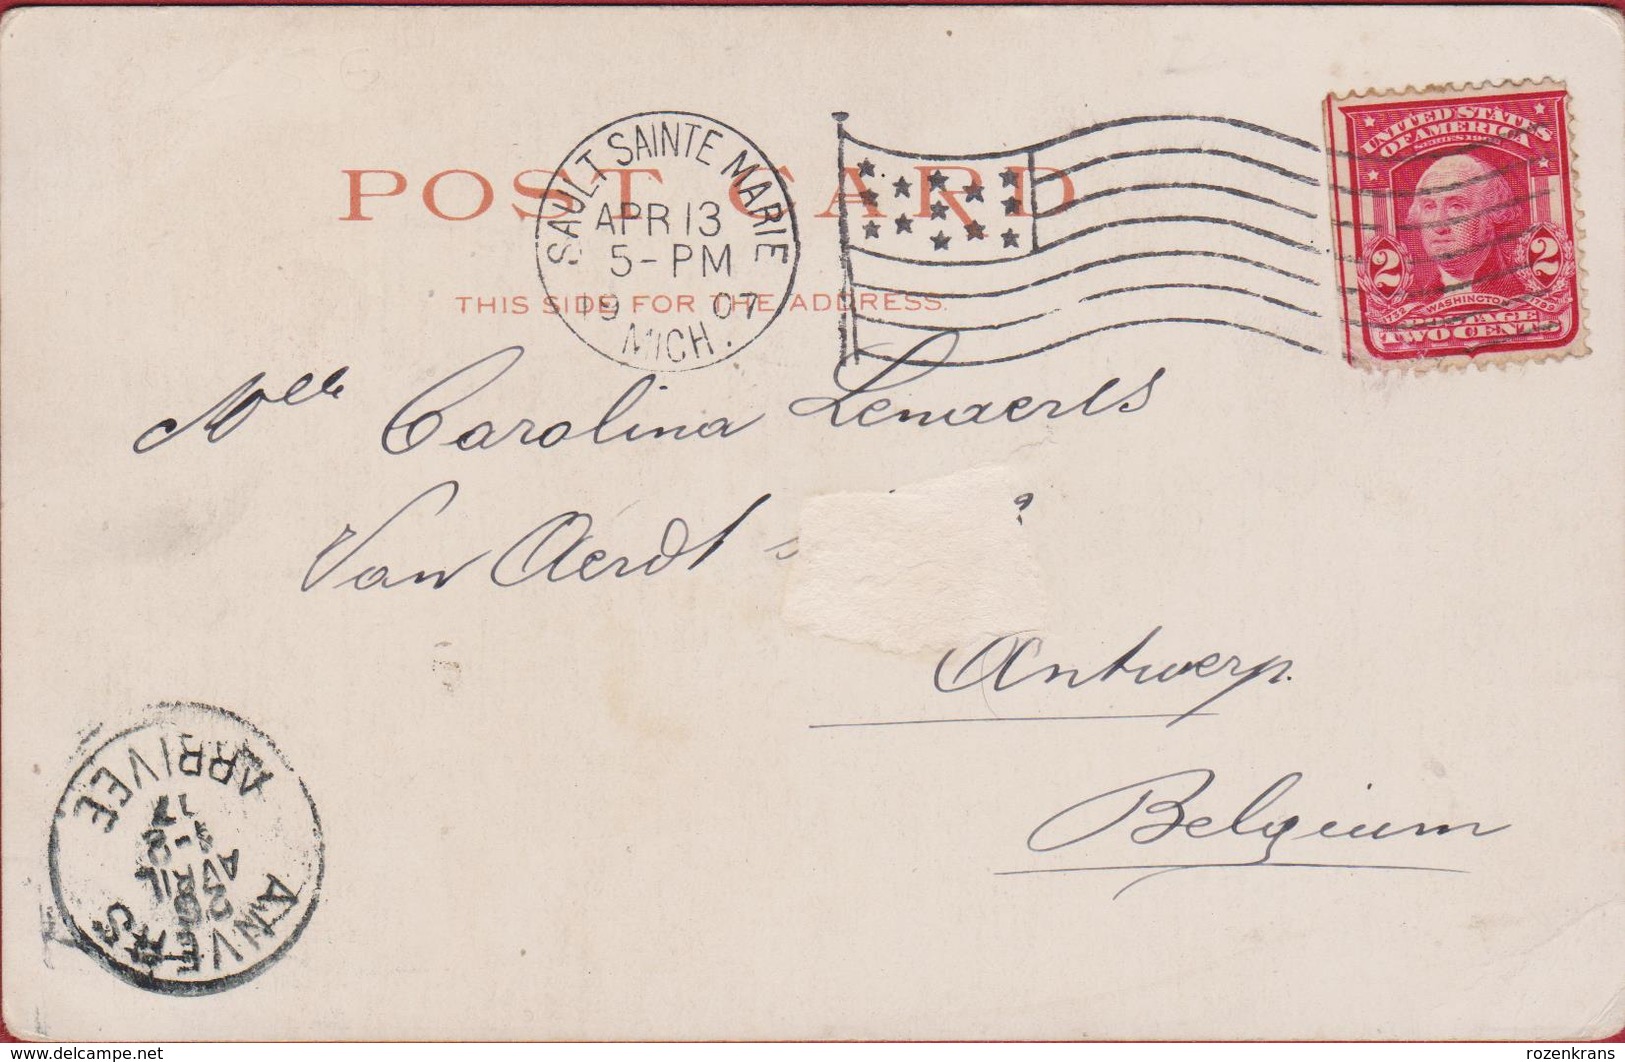 POST CARD
THIS SIDE FOR THE ADDRESS.
SAULT SAINTE MARIE
APR 13
5-PM
19 07
MICH.
UNITED STATES
OF AMERICA
SERIES 1902
2 2
1732 WASHINGTON 1799
POSTAGE
TWO CENTS
Mlle Carolina Lenaerts
Van Aerdt s
Antwerp.
Belgium
ANVERS
ARRIVEE
AVRIL
www.delcampe.net
rozenkrans